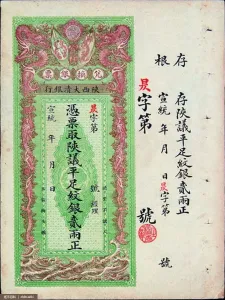 存根
存陝議平足紋銀貳兩正
宣統 年 月 日 昃字第 號
昃字第 號
兌換銀票
陝西大清銀行
昃字第 號
憑票取陝議平足紋銀貳兩正
宣統 年 月 日
經理